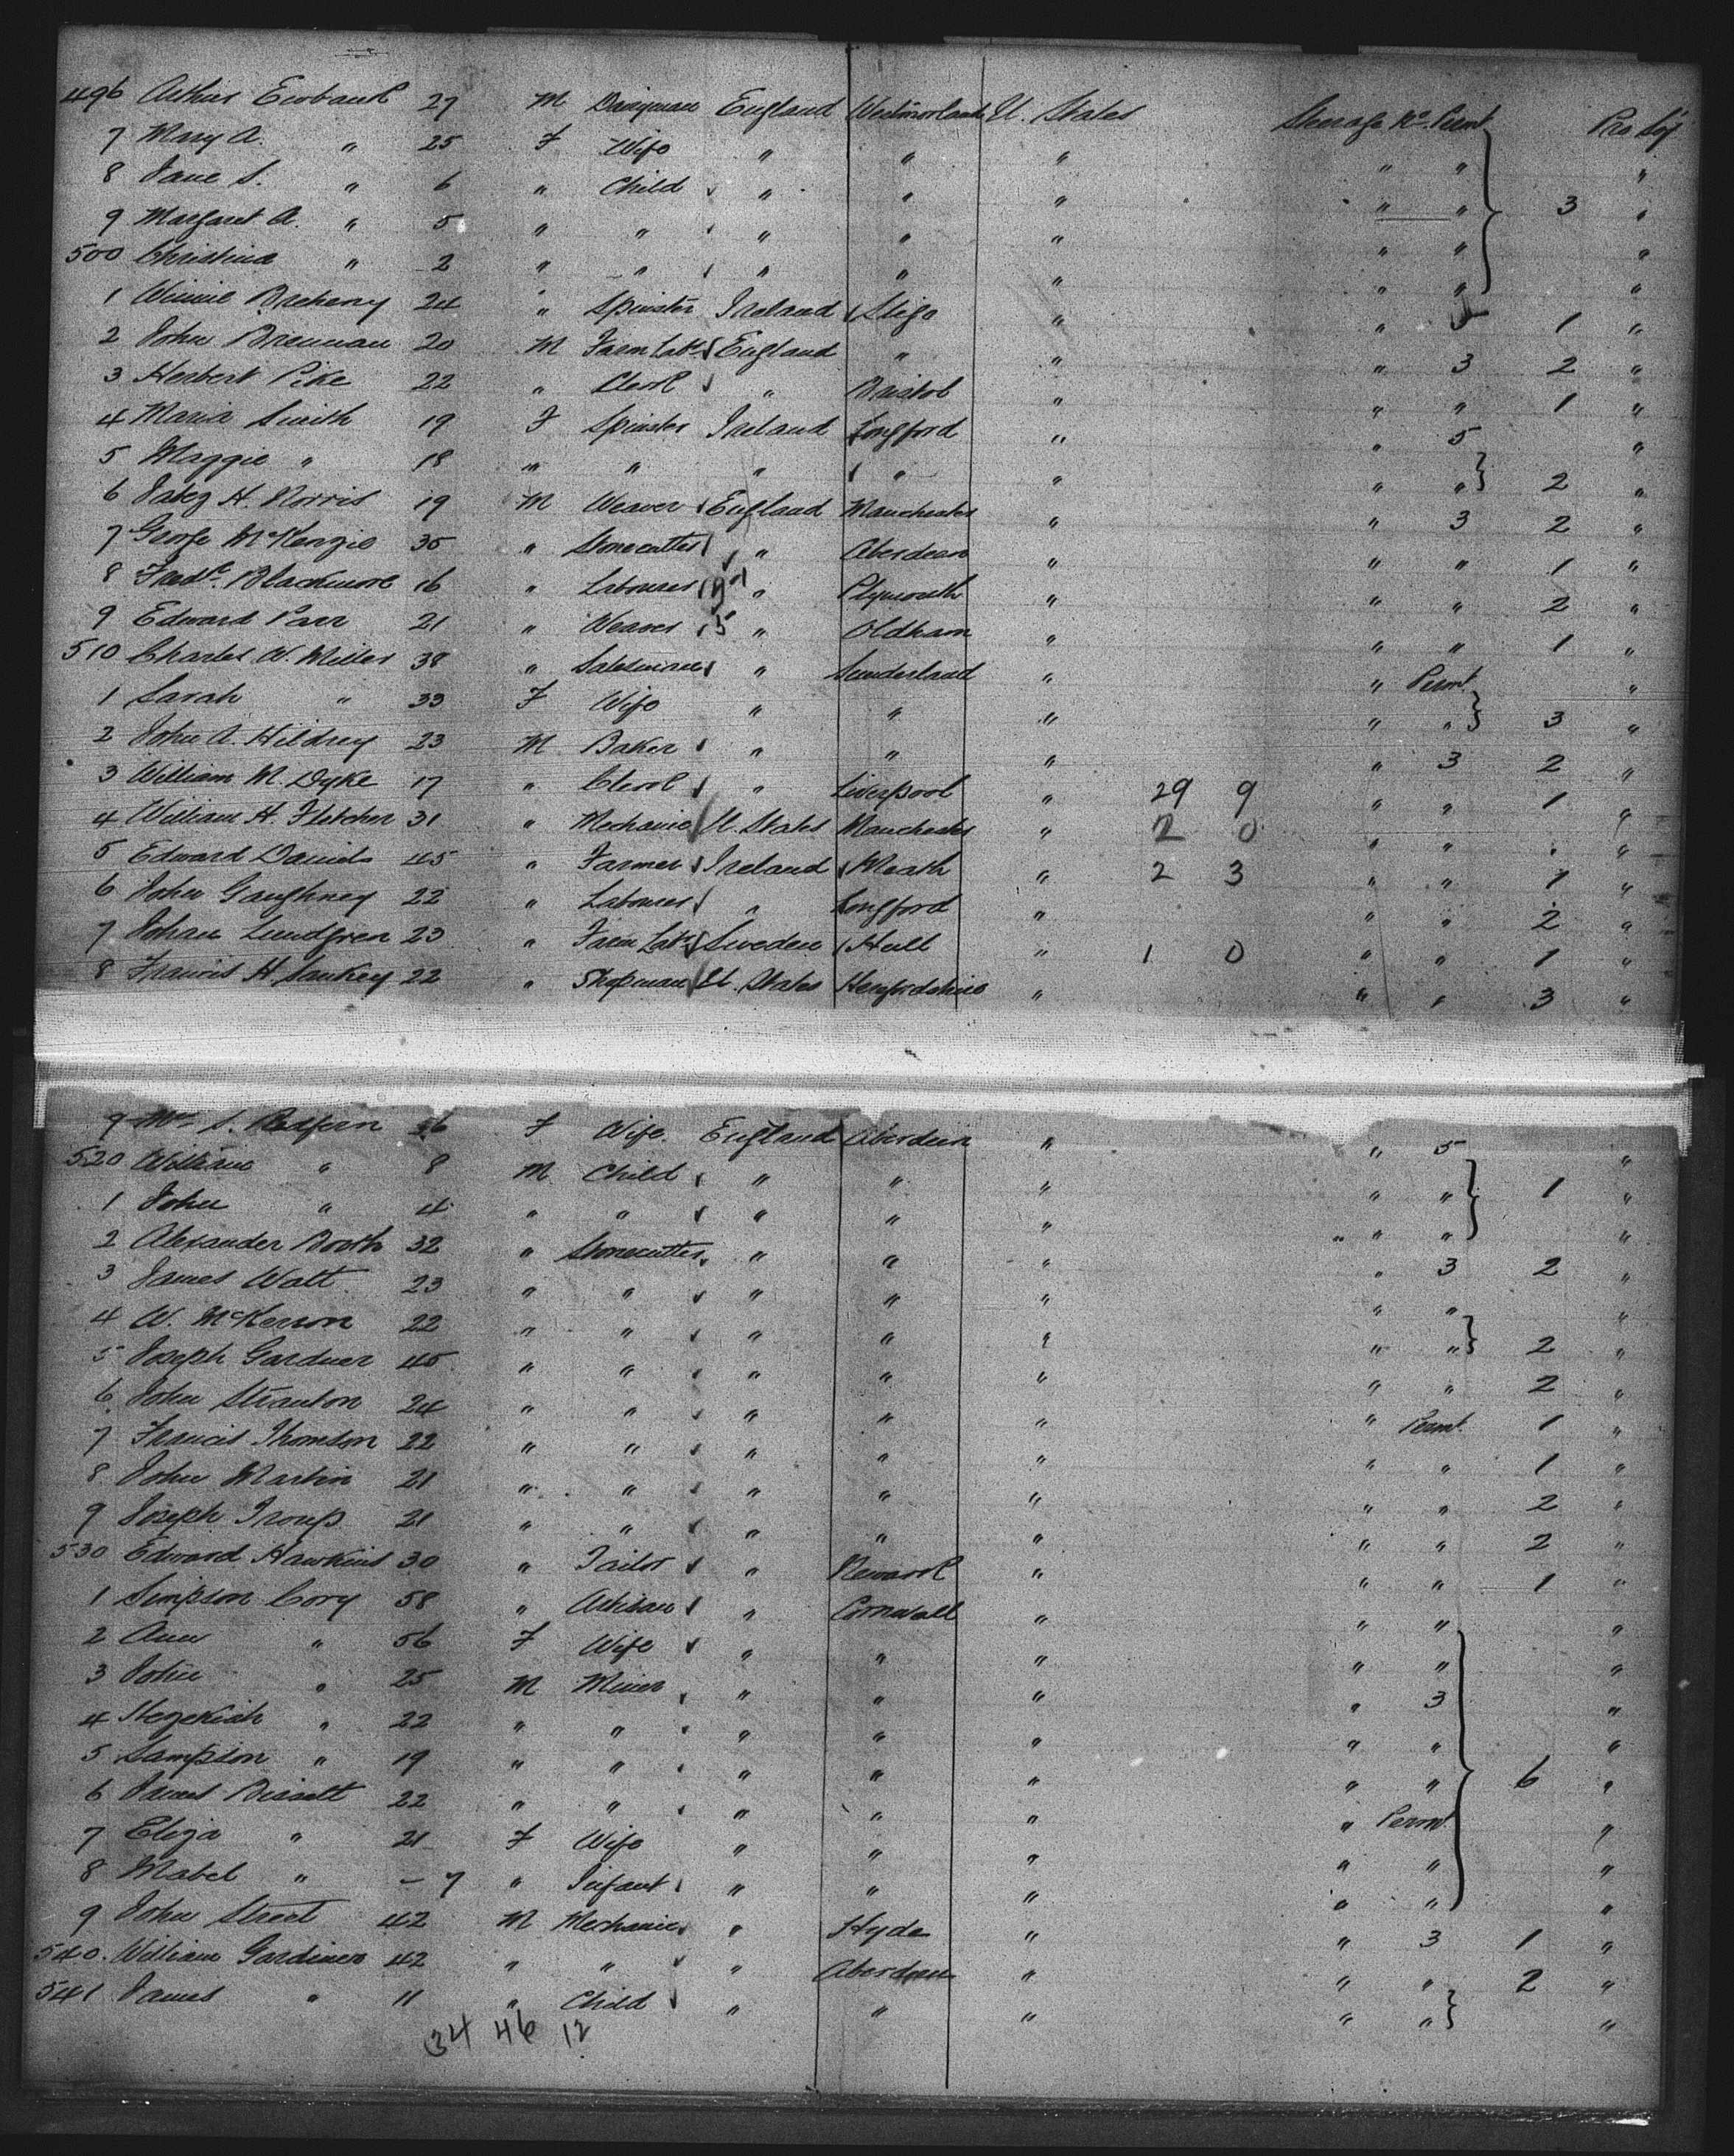 496 Arthur Ewbank 27 M Dairyman England Westmorland U. States Steerage No. Permt Pro Soj
7 Mary A. " 25 F Wife " " " " " "
8 Jane S. " 6 " Child " " " " " 3 "
9 Margaret A. " 5 " " " " " " " "
500 Christina " 2 " " " " " " " "
1 Winnie Breheny 24 " Spinster Ireland Sligo " " 1 "
2 John Brennan 20 M Farm Labr England " " " 3 2 "
3 Herbert Pike 22 " Clerk " Bristol " " " 1 "
4 Maria Smith 19 F Spinster Ireland Longford " " 5 "
5 Maggie " 18 " " " " " " " 2 "
6 Jabez H. Norris 19 M Weaver England Manchester " " 3 2 "
7 George McKenzie 35 " Stonecutter " Aberdeen " " " 1 "
8 Fredk. Blackmore 16 " Labourer " Plymouth " " " 2 "
9 Edward Parr 21 " Weaver 5 " Oldham " " " 1 "
510 Charles W. Miller 38 " Salesman " Sunderland " " Permt "
1 Sarah " 33 F Wife " " " " " 3 "
2 John A. Hildrey 23 M Baker " " " " 3 2 "
3 William M. Dyke 17 " Clerk " Liverpool " 29 9 " " 1 "
4 William H. Fletcher 31 " Mechanic U. States Manchester " 2 0 " " " "
5 Edward Daniels 45 " Farmer Ireland Meath " 2 3 " " 1 "
6 John Gaughney 22 " Labourer " Longford " " " 2 "
7 Johan Lundgren 23 " Farm Labr Sweden Hull " 1 0 " " 1 "
8 Francis H. Sankey 22 " Shopman U. States Herefordshire " " " 3 "
9 Mrs S. Redfern 36 F Wife England Aberdeen " " 5 "
520 William " 8 M Child " " " " " 1 "
1 John " 4 " " " " " " " "
2 Alexander Booth 32 " Stonecutter " " " " 3 2 "
3 James Watt 23 " " " " " " " "
4 W. McKerron 22 " " " " " " " 2 "
5 Joseph Gardner 45 " " " " " " " 2 "
6 John Stranton 24 " " " " " " Permt 1 "
7 Francis Thomson 22 " " " " " " " 1 "
8 John Martin 21 " " " " " " " 2 "
9 Joseph Troup 21 " " " " " " " 2 "
530 Edward Hawkins 30 " Tailor " Newark " " " 1 "
1 Simpson Cory 58 " Artisan " Cornwall " " " "
2 Ann " 56 F Wife " " " " " "
3 John " 25 M Miner " " " " 3 "
4 Hezekiah " 22 " " " " " " " "
5 Sampson " 19 " " " " " " " 6 "
6 James Bissett 22 " " " " " " Permt "
7 Eliza " 21 F Wife " " " " " "
8 Mabel " - 7 " Infant " " " " " "
9 John Street 42 M Mechanic " Hyde " " 3 1 "
540. William Gardiner 42 " " " Aberdeen " " " 2 "
541 James " 11 " Child " " " " " "
34 46 12